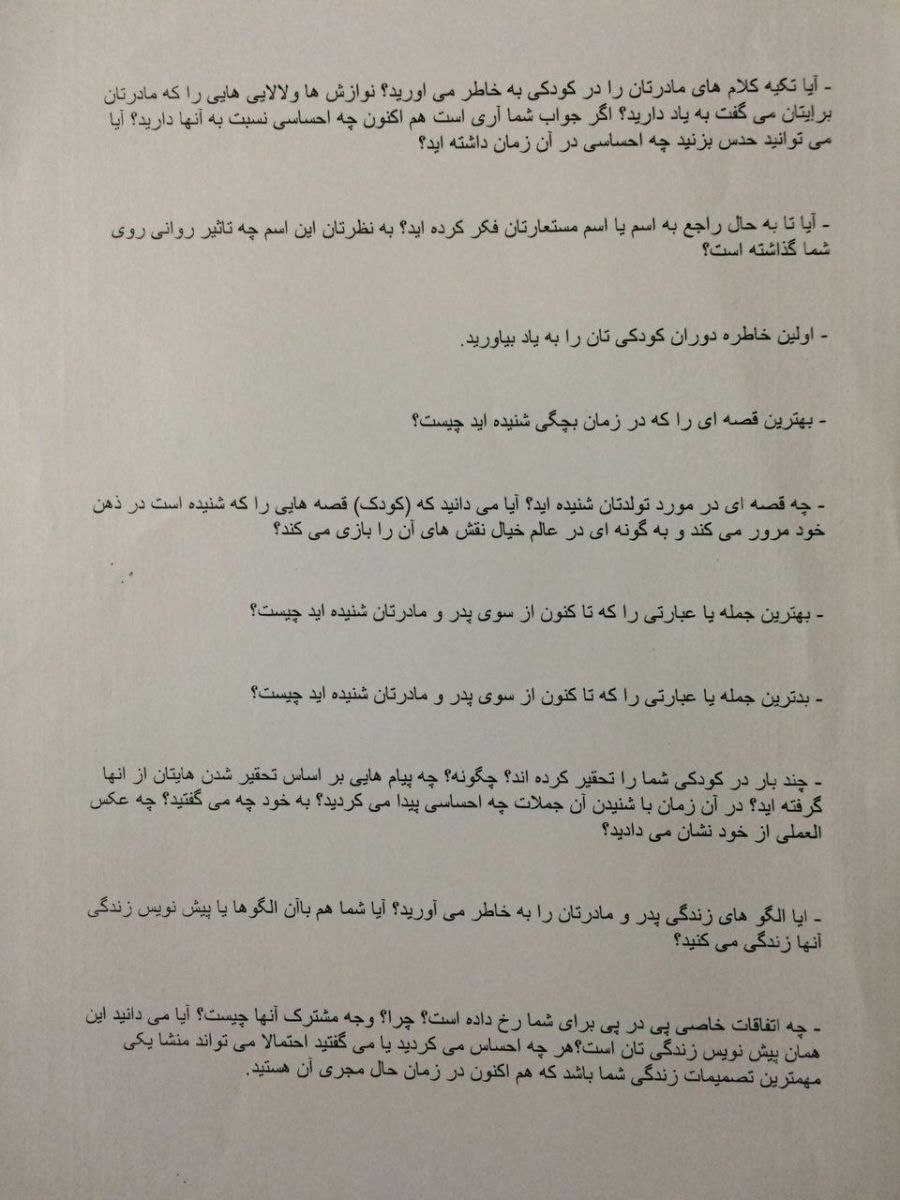 - آیا تکیه کلام های مادرتان را در کودکی به خاطر می اورید؟ نوازش ها ولالایی هایی را که مادرتان
برایتان می گفت به یاد دارید؟ اگر جواب شما آری است هم اکنون چه احساسی نسبت به آنها دارید؟ آیا
می توانید حدس بزنید چه احساسی در آن زمان داشته اید؟
- آیا تا به حال راجع به اسم یا اسم مستعارتان فکر کرده اید؟ به نظرتان این اسم چه تاثیر روانی روی
شما گذاشته است؟
- اولین خاطره دوران کودکی تان را به یاد بیاورید.
- بهترین قصه ای را که در زمان بچگی شنیده اید چیست؟
- چه قصه ای در مورد تولدتان شنیده اید؟ آیا می دانید که (کودک) قصه هایی را که شنیده است در ذهن
خود مرور می کند و به گونه ای در عالم خیال نقش های آن را بازی می کند؟
- بهترین جمله یا عبارتی را که تا کنون از سوی پدر و مادرتان شنیده اید چیست؟
- بدترین جمله یا عبارتی را که تا کنون از سوی پدر و مادرتان شنیده اید چیست؟
- چند بار در کودکی شما را تحقیر کرده اند؟ چگونه؟ چه پیام هایی بر اساس تحقیر شدن هایتان از انها
گرفته اید؟ در آن زمان با شنیدن آن جملات چه احساسی پیدا می کردید؟ به خود چه می گفتید؟ چه عکس
العملی از خود نشان می دادید؟
- ایا الگو های زندگی پدر و مادرتان را به خاطر می آورید؟ آیا شما هم باآن الگوها یا پیش نویس زندگی
آنها زندگی می کنید؟
- چه اتفاقات خاصی پی در پی برای شما رخ داده است؟ چرا؟ وجه مشترک آنها چیست؟ آیا می دانید این
همان پیش نویس زندگی تان است؟هر چه احساس می کردید یا می گفتید احتمالا می تواند منشا یکی
مهمترین تصمیمات زندگی شما باشد که هم اکنون در زمان حال مجری آن هستید.